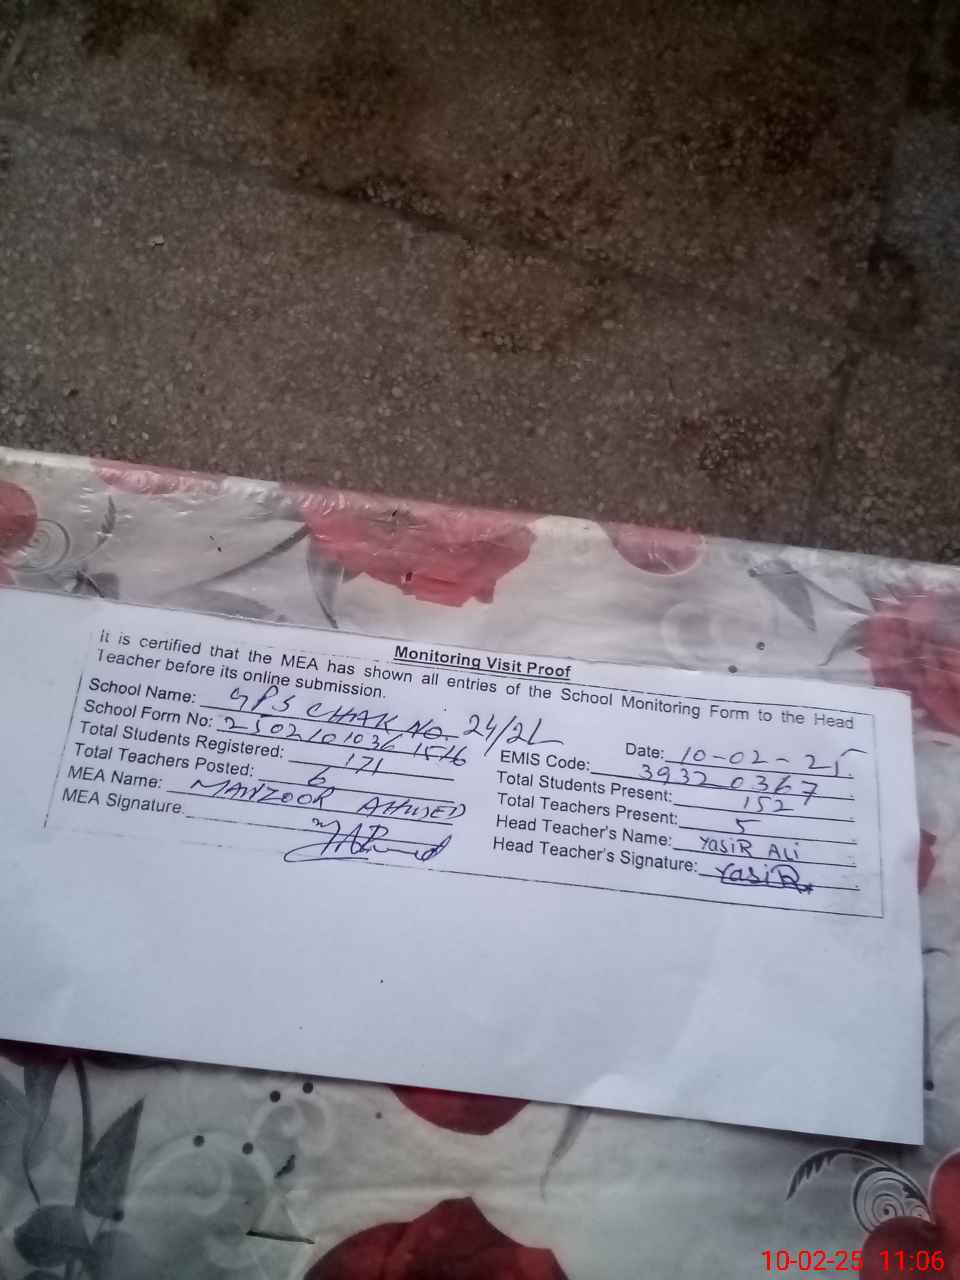 Monitoring Visit Proof
It is certified that the MEA has shown all entries of the School Monitoring Form to the Head
Teacher before its online submission.
School Name: GPS CHAK No. 24/2L Date: 10-02-25
School Form No: 2502101036 1516 EMIS Code: 39320367
Total Students Registered: 171 Total Students Present: 152
Total Teachers Posted: 6 Total Teachers Present: 5
MEA Name: MANZOOR AHMED Head Teacher's Name: YasiR ALi
MEA Signature: Head Teacher's Signature: YasiR
10-02-25 11:06